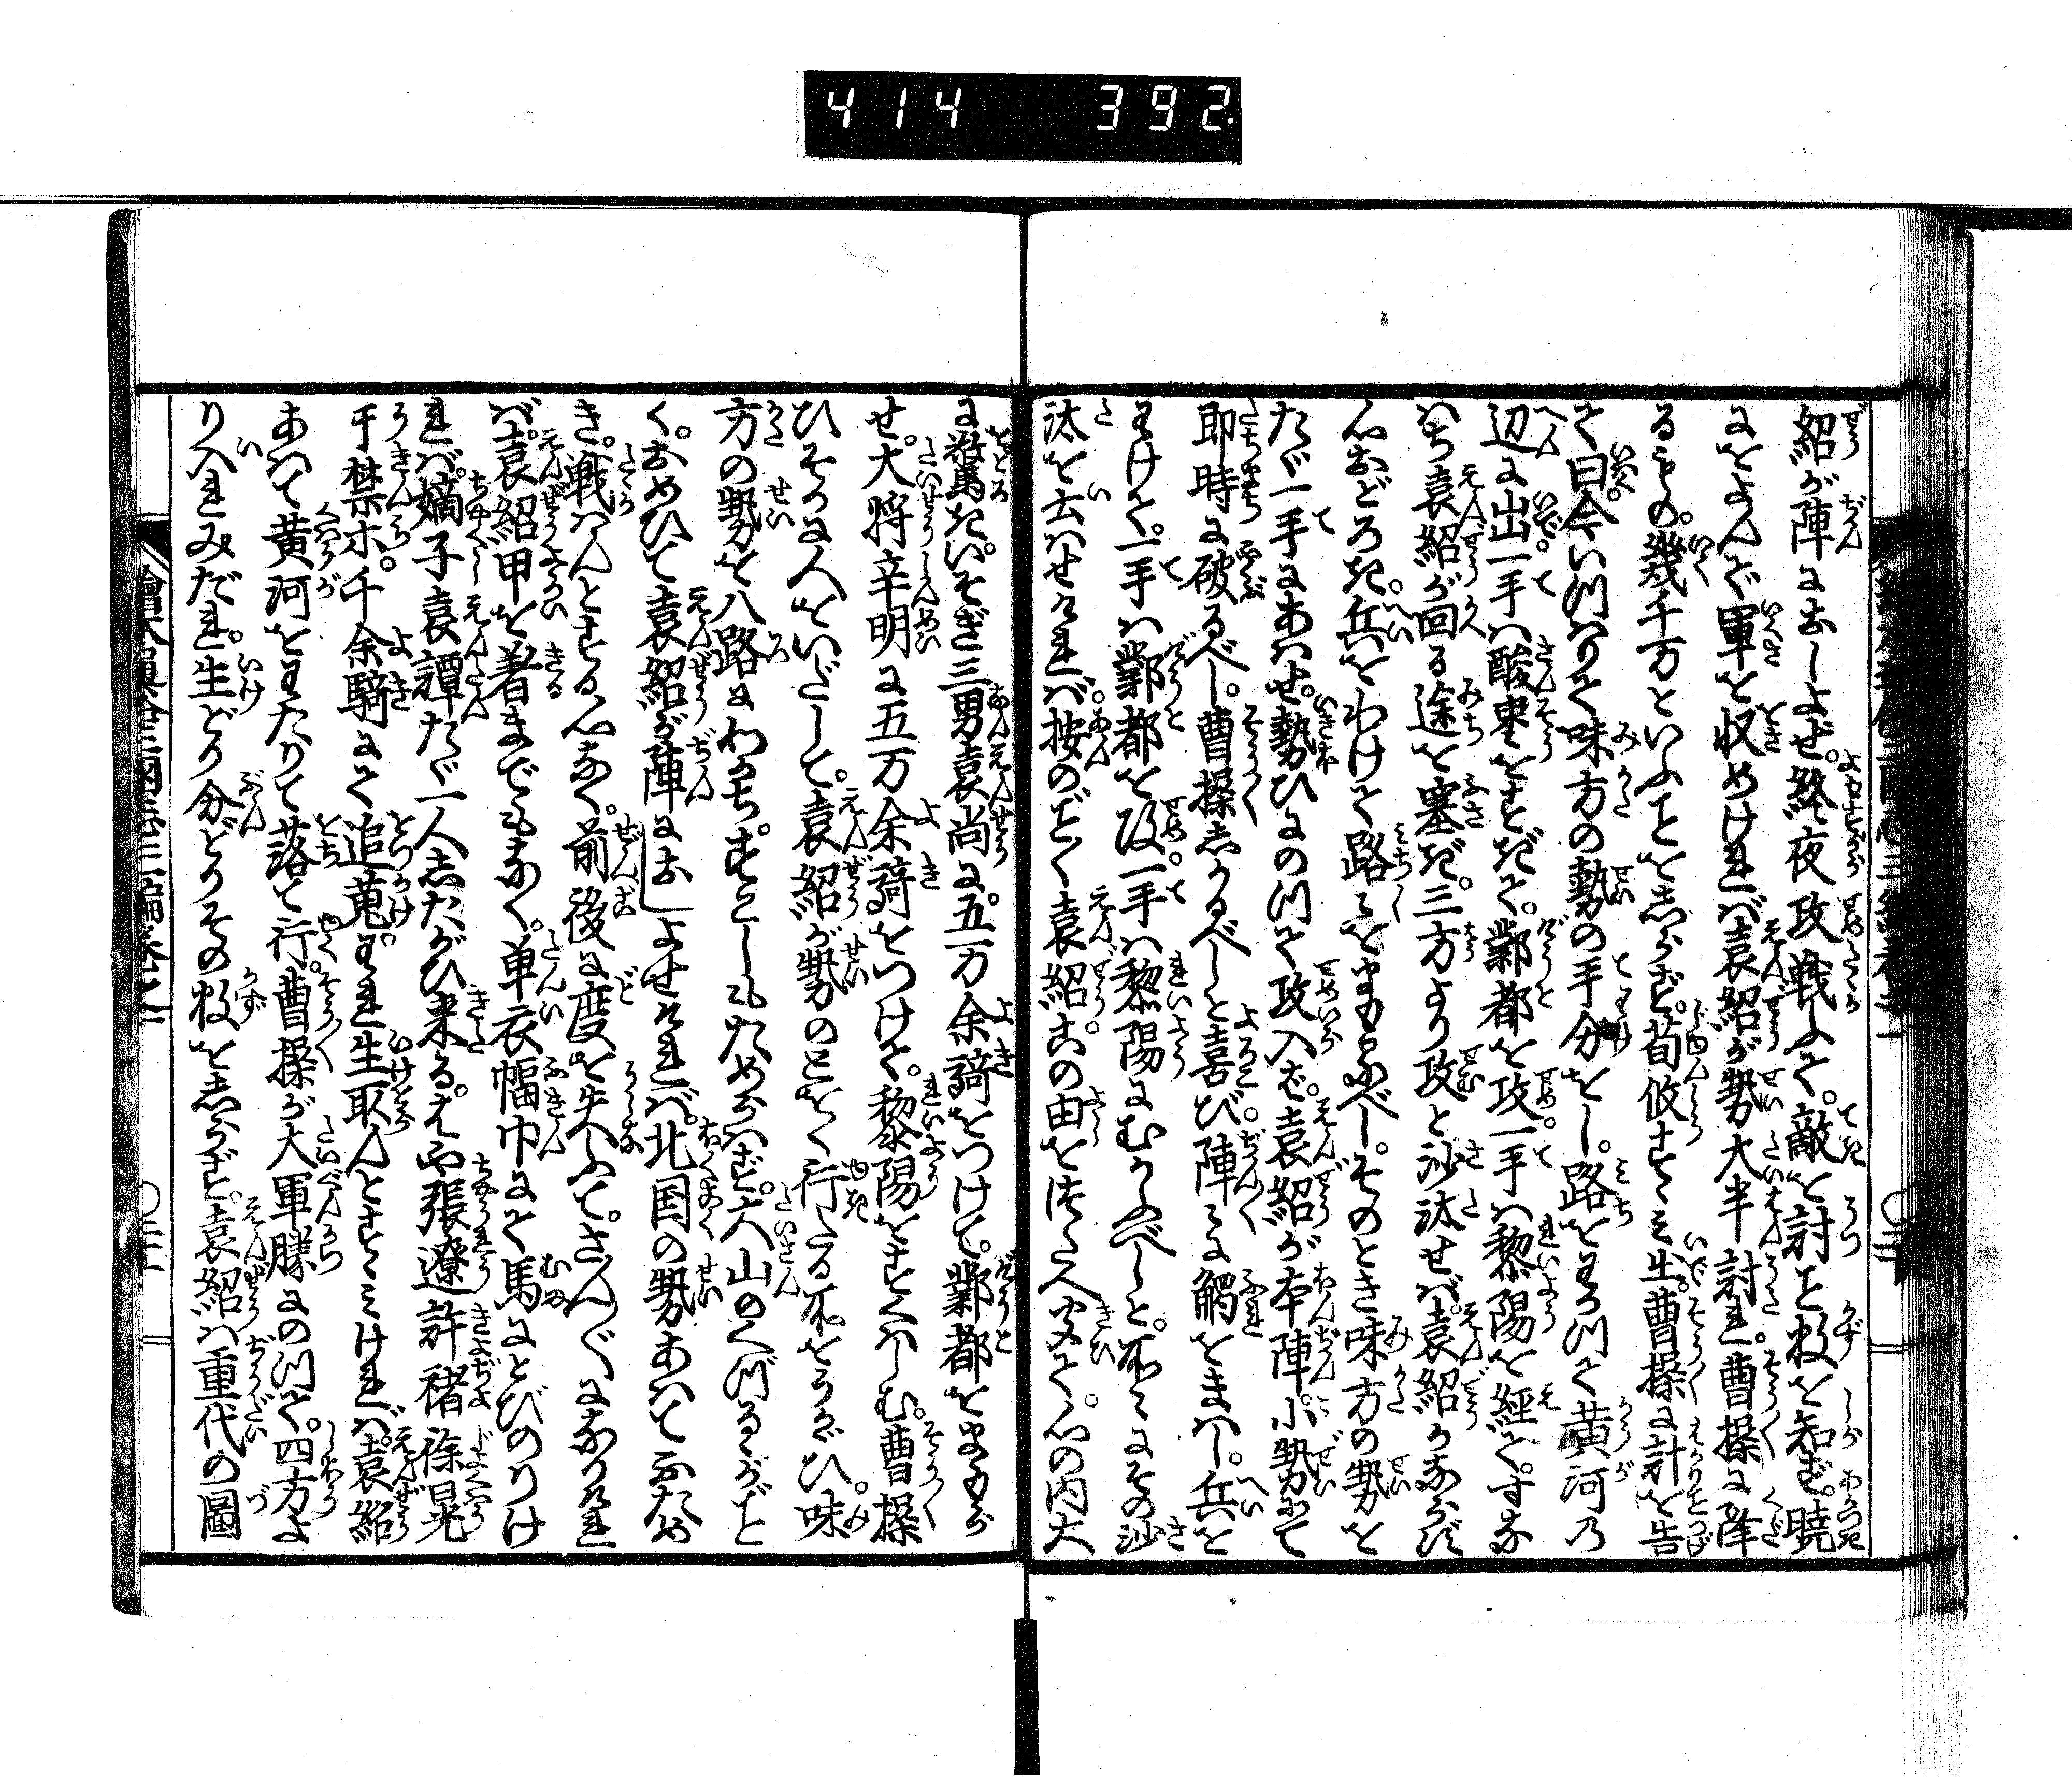 414 392
紹が陣におしよせ。終夜攻戦ふて。敵を討こと数を知ず。暁
におよんで軍を収めければ袁紹が勢大半討れ。曹操に降
るもの。幾千万といふことを志らず。荀攸すゝみ出。曹操に計を告
て曰。今いつはりて味方の勢の手分をし。路をわつて黄河の
辺に出一手は酸棗をすぎて。鄴都を攻一手は黎陽を経て。すな
はち袁紹が回る途を塞ぎ。三方より攻と沙汰せば。袁紹かならず
心おどろき。兵をわけて路々をまもるべし。そのとき味方の勢を
たゞ一手にあはせ。勢ひにのつて攻入ば。袁紹が本陣。小勢にて
即時に破るべし。曹操志かるべしと喜び陣々に觸をまはし。兵を
わけて。一手は鄴都を攻。一手は黎陽にむかふべしと。所々にその沙
汰を云はせければ。按のごとく袁紹。この由を伝え聞て。心の内大
に驚き。いそぎ三男袁尚に。五万余騎をつけて。鄴都をまもら
せ。大将辛明に五万余騎をつけて。黎陽をすくはしむ。曹操
ひそかに人をいだして。袁紹が勢のとをく行たる所をうかゞひ。味
方の勢を八路にわかち。すこしもためらはず。大山のくづるゝがごと
く。おめひて袁紹が陣におしよせければ。北国の勢あはてふため
き。戦はんとする心なく。前後に度を失ふて。さんざんになりけれ
ば。袁紹甲を着までもなく。単衣幅巾にて馬にとびのりけ
れば。嫡子袁譚たゞ一人志たがひ来る。はや張遼許褚徐晃
于禁ホ。千余騎にて追蒐。われ生取んとすゝみければ。袁紹
あはて黄河をわたりて落て行。曹操が大軍勝にのつて。四方よ
り入れみだれ。生どり分どりその数を志らず。袁紹は重代の圖